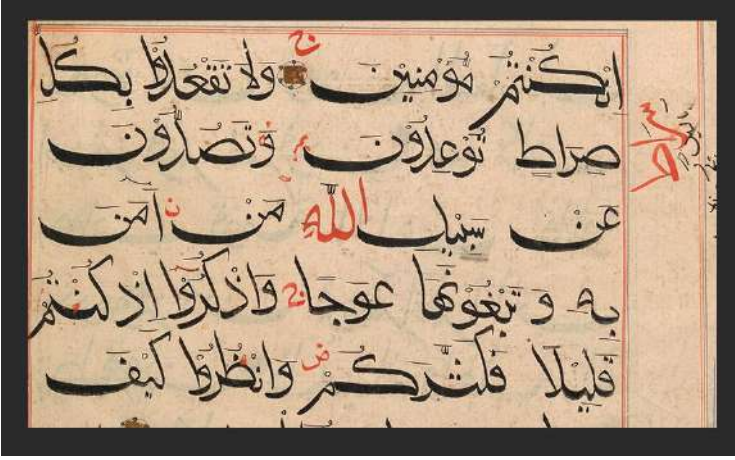 اِنْ كُنْتُمْ مُؤْمِنِيْنَ وَلَا تَقْعُدُوْا بِكُلِّ
صِرَاطٍ تُوْعِدُوْنَ وَتَصُدُّوْنَ
عَنْ سَبِيْلِ اللّٰهِ مَنْ اٰمَنَ
بِهٖ وَتَبْغُوْنَهَا عِوَجًا وَاذْكُرُوْا اِذْ كُنْتُمْ
قَلِيْلًا فَكَثَّرَكُمْ وَانْظُرُوْا كَيْفَ